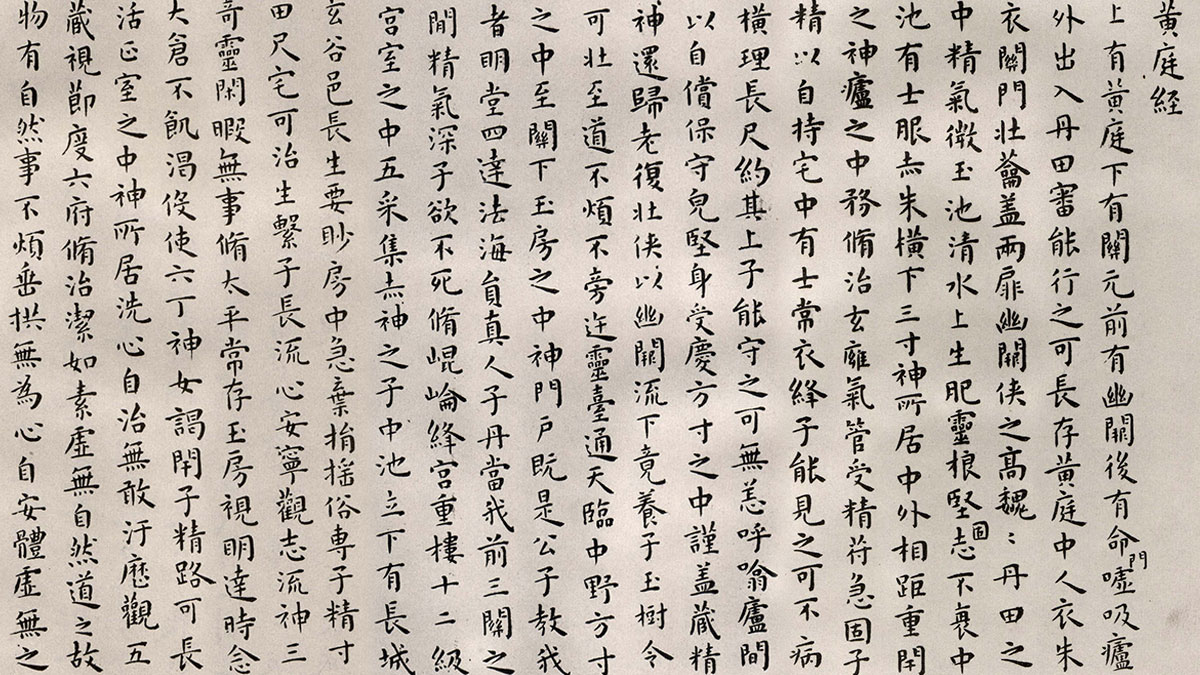 黃庭経
上有黃庭下有關元前有幽闕後有命門噓吸廬
外出入丹田審能行之可長存黃庭中人衣朱
衣關門壯籥盖兩扉幽闕俠之高魏〻丹田之
中精氣微玉池清水上生肥靈根堅固志不衰中
池有士服赤朱橫下三寸神所居中外相距重閇
之神廬之中務脩治玄廱氣管受精苻急固子
精以自持宅中有士常衣絳子能見之可不病
橫理長尺約其上子能守之可無恙呼噏廬間
以自償保守皃堅身受慶方寸之中謹盖藏精
神還歸老復壯俠以幽闕流下竟養子玉樹令
可壯至道不煩不旁迕靈臺通天臨中野方寸
之中至關下玉房之中神門戶既是公子教我
者明堂四達法海負真人子丹當我前三關之
閒精氣深子欲不死脩崐崘絳宮重樓十二級
宮室之中五采集赤神之子中池立下有長城
玄谷邑長生要眇房中急棄捐揺俗専子精寸
田尺宅可治生繫子長流心安寧觀志流神三
奇靈閑暇無事脩太平常存玉房視明達時念
大倉不飢渴役使六丁神女謁閇子精路可長
活正室之中神所居洗心自治無敢汙歷觀五
藏視節度六府脩治潔如素虛無自然道之故
物有自然事不煩垂拱無為心自安體虛無之